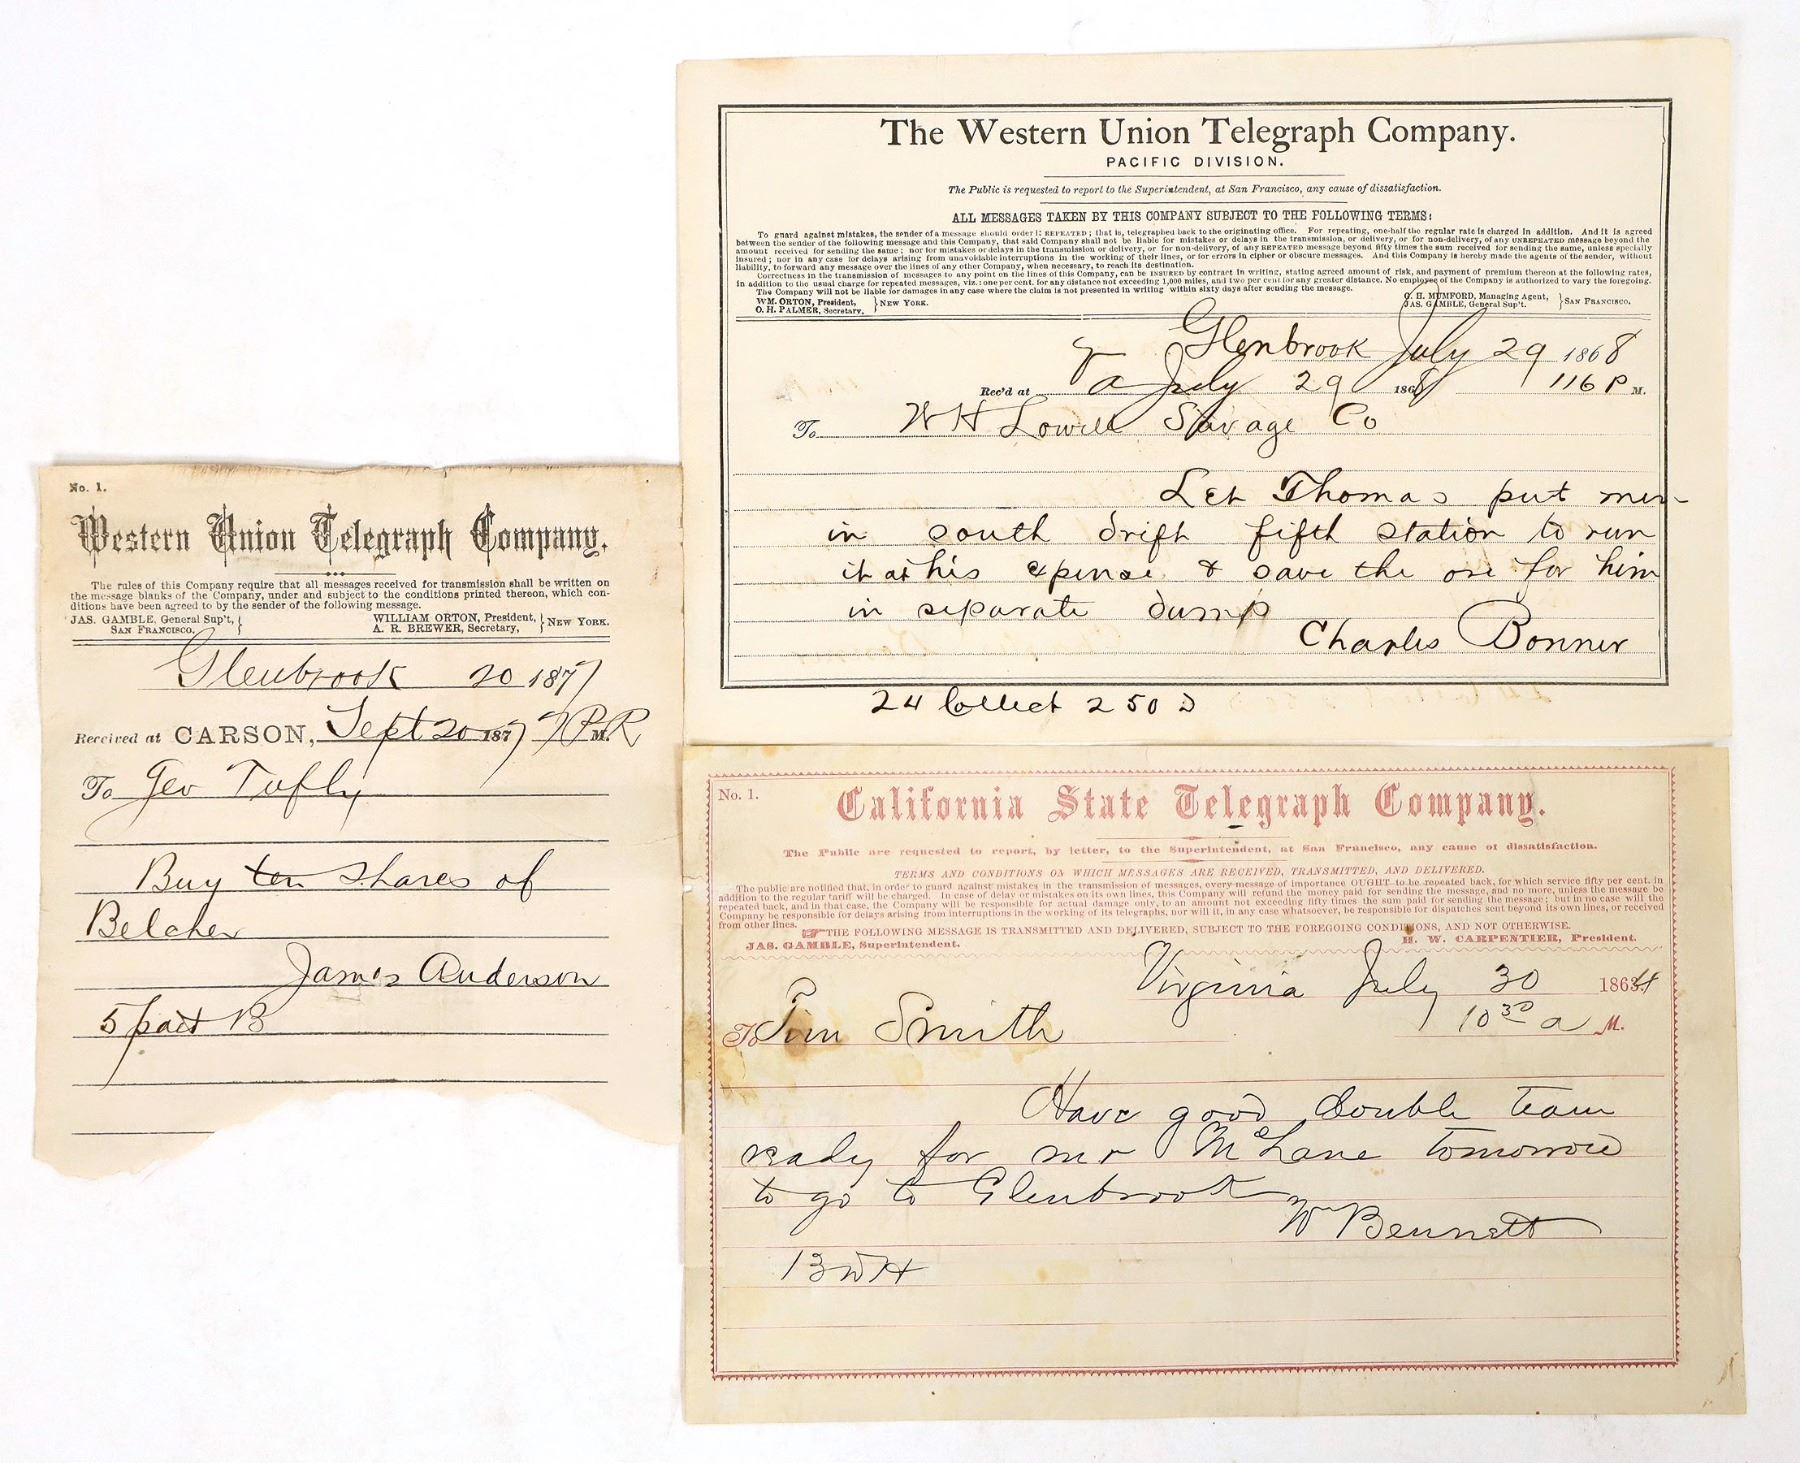 The Western Union Telegraph Company.
PACIFIC DIVISION.
The Public is requested to report to the Superintendent, at San Francisco, any cause of dissatisfaction.
ALL MESSAGES TAKEN BY THIS COMPANY SUBJECT TO THE FOLLOWING TERMS:
To guard against mistakes, the sender of a message should order it REPEATED; that is, telegraphed back to the originating office. For repeating, one-half the regular rate is charged in addition. And it is agreed
between the sender of the following message and this Company, that said Company shall not be liable for mistakes or delays in the transmission, or delivery, or for non-delivery, of any UNREPEATED message beyond the
amount received for sending the same; nor for mistakes or delays in the transmission or delivery, or for non-delivery, of any REPEATED message beyond fifty times the sum received for sending the same, unless specially
insured; nor in any case for delays arising from unavoidable interruptions in the working of their lines, or for errors in cipher or obscure messages. And this Company is hereby made the agents of the sender, without
liability, to forward any message over the lines of any other Company, when necessary, to reach its destination.
Correctness in the transmission of messages to any point on the lines of this Company, can be INSURED by contract in writing, stating agreed amount of risk, and payment of premium thereon at the following rates,
in addition to the usual charge for repeated messages, viz.: one per cent. for any distance not exceeding 1,000 miles, and two per cent for any greater distance. No employee of the Company is authorized to vary the foregoing.
The Company will not be liable for damages in any case where the claim is not presented in writing within sixty days after sending the message.
WM. ORTON, President,
O. H. PALMER, Secretary,
} NEW YORK.
G. H. MUMFORD, Managing Agent,
JAS. GAMBLE, General Sup't.
} SAN FRANCISCO.
Glenbrook July 29 1868
Rec'd at July 29 1868 116 P M.
To W H Lowell Savage Co
Let Thomas put men
in south drift fifth station to run
it at his expense & save the ore for him
in separate dump
Charles Bonner
24 Collect 2 50
No. 1.
Western Union Telegraph Company.
The rules of this Company require that all messages received for transmission shall be written on
the message blanks of the Company, under and subject to the conditions printed thereon, which con-
ditions have been agreed to by the sender of the following message.
JAS. GAMBLE, General Sup't,
SAN FRANCISCO.
}
WILLIAM ORTON, President,
A. R. BREWER, Secretary,
} NEW YORK.
Glenbrook 20 1877
Received at CARSON, Sept 20 1877 7 P M. R
To Geo Tufly
Buy ten shares of
Belcher
James Anderson
5 paid B
No. 1.
California State Telegraph Company.
The Public are requested to report, by letter, to the Superintendent, at San Francisco, any cause of dissatisfaction.
TERMS AND CONDITIONS ON WHICH MESSAGES ARE RECEIVED, TRANSMITTED, AND DELIVERED.
The public are notified that, in order to guard against mistakes in the transmission of messages, every message of importance OUGHT to be repeated back, for which service fifty per cent. in
addition to the regular tariff will be charged. In case of delay or mistakes on its own lines, this Company will refund the money paid for sending the message, and no more, unless the message be
repeated back, and in that case, the Company will be responsible for actual damage only, to an amount not exceeding fifty times the sum paid for sending the message; but in no case will the
Company be responsible for delays arising from interruptions in the working of its telegraphs, nor will it, in any case whatsoever, be responsible for dispatches sent beyond its own lines, or received
from other lines. ☞ THE FOLLOWING MESSAGE IS TRANSMITTED AND DELIVERED, SUBJECT TO THE FOREGOING CONDITIONS, AND NOT OTHERWISE.
JAS. GAMBLE, Superintendent. H. W. CARPENTIER, President.
Virginia July 30 1864
To Jim Smith 10 30 a M.
Have good double team
ready for mr McLane tomorrow
to go to Glenbrook
Wm Bennett
13 W H